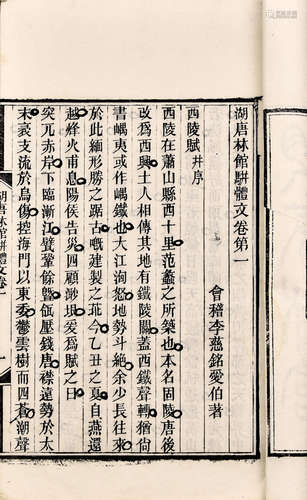 湖唐林館駢體文卷第一
會稽李慈銘愛伯著
西陵賦并序
西陵在蕭山縣西十里范蠡之所築也本名固陵唐後
改爲西興土人相傳其地有鐵陵關蓋西鐵聲轉猶尚
書嵎夷或作嵎鐵也大江洶怒地勢斗絶余少長往來
於此緬形勝之踞古嘅建製之茫今乙丑之夏自燕還
越烽火甫息陽侯告災四顧渺垠爰爲賦之曰
突兀赤岸下臨漸江襞鞏餘暨缻壓錢唐襟遠勢於太
末豪支流於烏傷控海門以東委鬱雲樹而四蒼潮聲
湖唐林館駢體文卷一
一